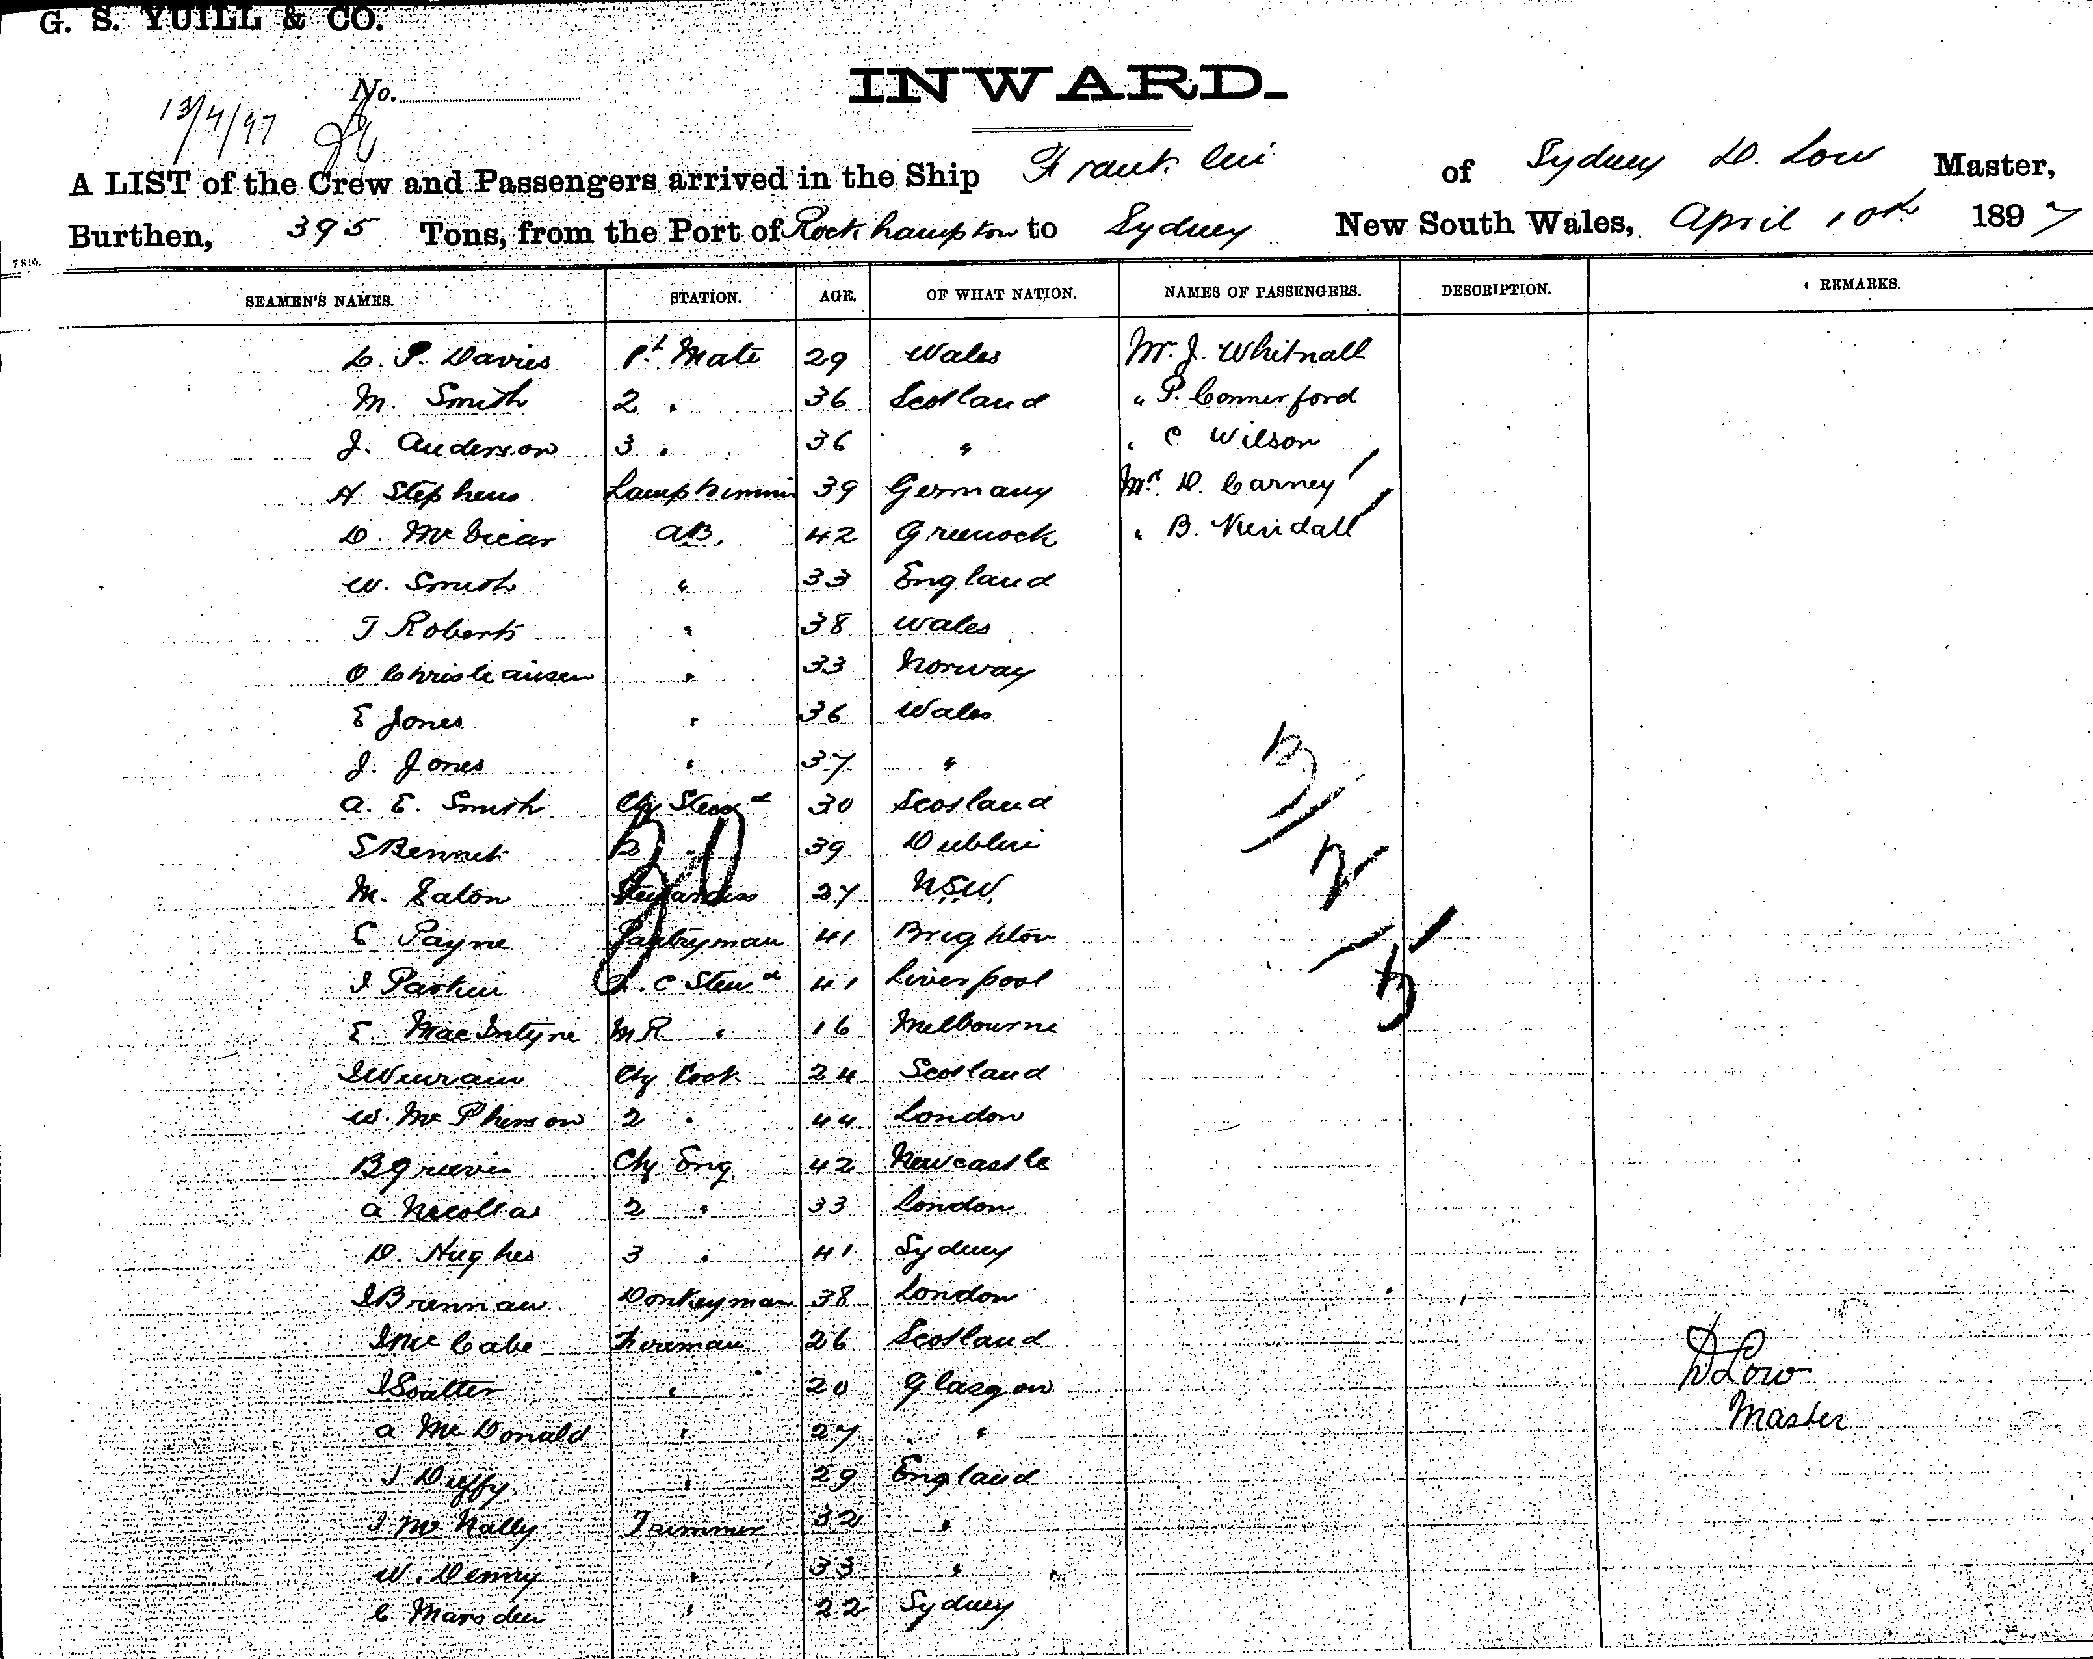 G. S. YUILL & CO.
INWARD.
No.
13/4/97
A LIST of the Crew and Passengers arrived in the Ship Franklin of Sydney D. Low Master,
Burthen, 395 Tons, from the Port of Rockhampton to Sydney New South Wales, April 10th 1897
SEAMEN'S NAMES. STATION. AGE. OF WHAT NATION. NAMES OF PASSENGERS. DESCRIPTION. REMARKS.
D. P. Davies 1st Mate 29 Wales Mr. J. Whitnall
M. Smith 2 " 36 Scotland " P. Commerford
J. Anderson 3 " 36 " " C Wilson
H Stephens Lamptrimmer 39 Germany Mrs. D. Carney
D. McVicar AB. 42 Greenock " B. Kendall
W. Smith " 33 England
T Roberts " 38 Wales
O Christiansen " 33 Norway
E Jones " 36 Wales
J. Jones " 37 "
A. E. Smith Chf Stewd 30 Scotland
S Bennett 2 " 39 Dublin
M. Eaton Stewardess 27 N.S.W.
E Payne Pantryman 41 Brighton
J Parkin S.C Stewd 41 Liverpool
E. MacIntyre M R " 16 Melbourne
Chf Cook 24 Scotland
W. McPherson 2 " 44 London
B Greaves Chf Eng 42 Newcastle
A Nicollas 2 " 33 London
D. Hughes 3 " 41 Sydney
J Brennan Donkeyman 38 London
J McCabe Fireman 26 Scotland
J Salter " 20 Glasgow
A McDonald " 27 "
J Duffy " 29 England
J McNally Trimmer 32 "
W. Denny " 33 "
C Marsden " 22 Sydney
30
3
2
5
D Low
Master